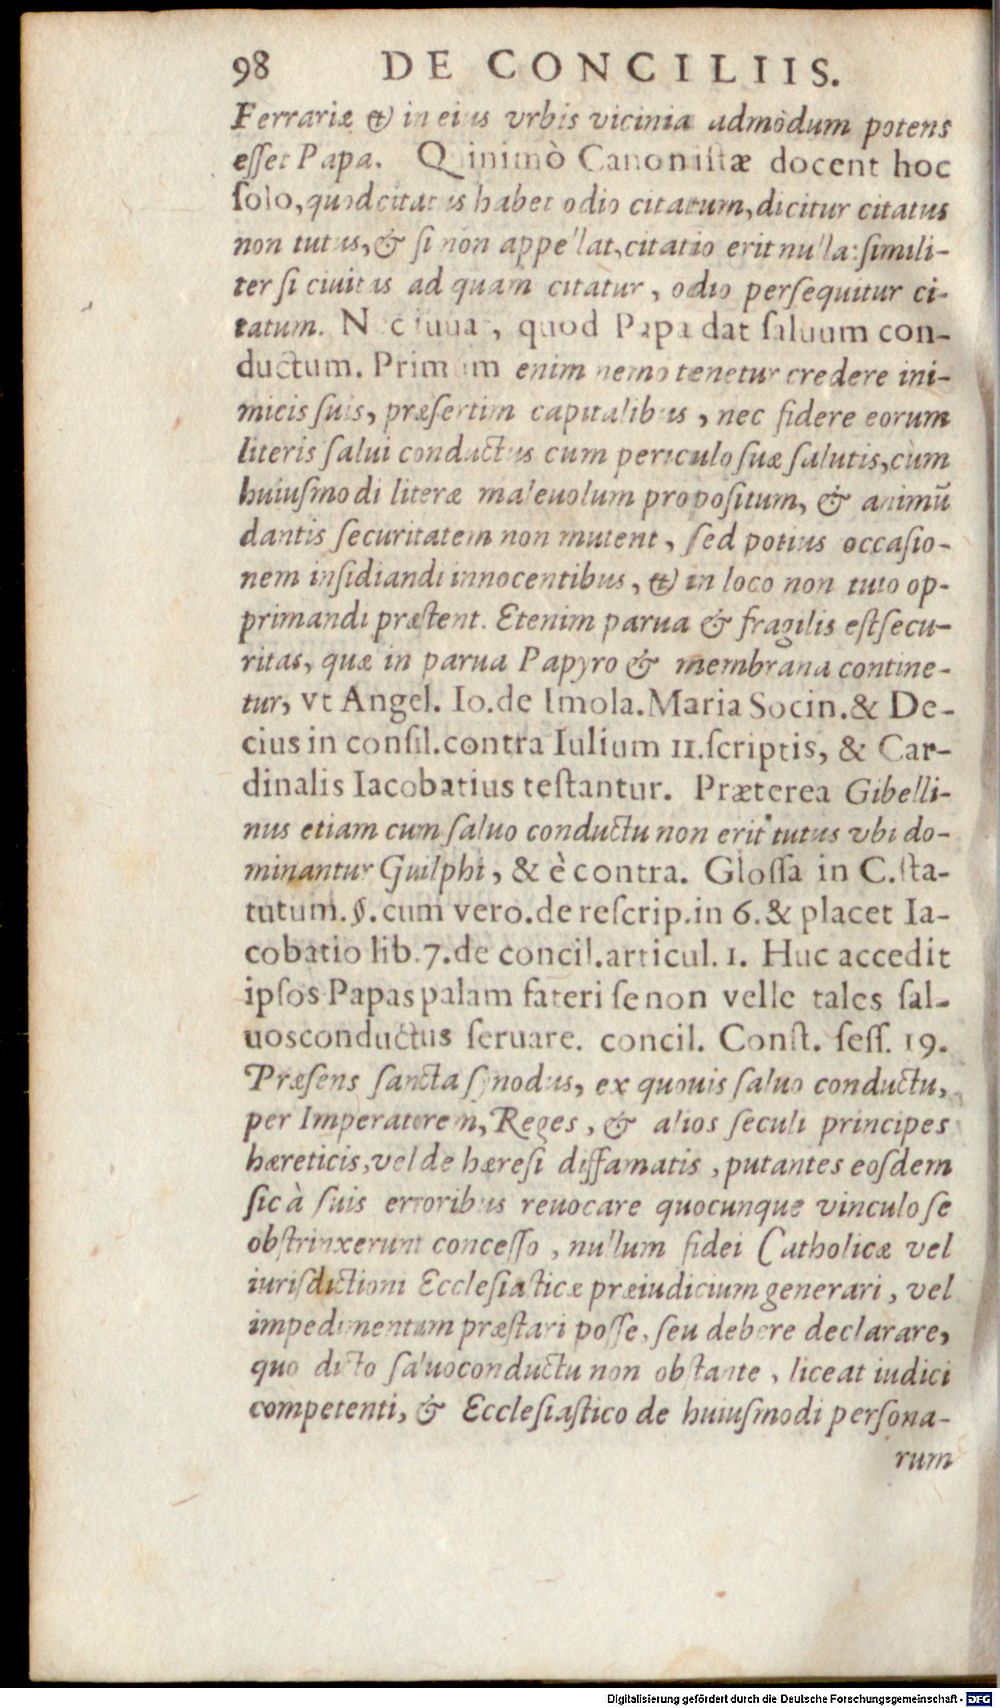 98 DE CONCILIIS.
Ferrariæ & in eius vrbis vicinia admòdum potens
esset Papa. Quinimò Canonistæ docent hoc
solo, quod citatus habet odio citatum, dicitur citatus
non tutus, & si non appellat, citatio erit nulla: simili-
ter si ciuitas ad quam citatur, odio persequitur ci-
tatum. Nec iuuat, quod Papa dat saluum con-
ductum. Primum enim nemo tenetur credere ini-
micis suis, præsertim capitalibus, nec fidere eorum
literis salui conductus cum periculo suæ salutis, cùm
huiusmodi literæ maleuolum propositum, & animū
dantis securitatem non mutent, sed potius occasio-
nem insidiandi innocentibus, & in loco non tuto op-
primandi præstent. Etenim parua & fragilis est secu-
ritas, quæ in parua Papyro & membrana contine-
tur, vt Angel. Io. de Imola. Maria Socin. & De-
cius in consil. contra Iulium 11. scriptis, & Car-
dinalis Iacobatius testantur. Præterea Gibelli-
nus etiam cum saluo conductu non erit tutus vbi do-
minantur Guilphi, & è contra. Glossa in C. sta-
tutum. §. cum vero. de rescrip. in 6. & placet Ia-
cobatio lib. 7. de concil. articul. 1. Huc accedit
ipsos Papas palam fateri se non velle tales sal-
uosconductus seruare. concil. Const. sess. 19.
Præsens sancta synodus, ex quouis saluo conductu,
per Imperatorem, Reges, & alios seculi principes
hæreticis, vel de hæresi diffamatis, putantes eosdem
sic à suis erroribus reuocare quocunque vinculo se
obstrinxerunt concesso, nullum fidei Catholicæ vel
iurisdictioni Ecclesiasticæ præiudicium generari, vel
impedimentum præstari posse, seu debere declarare,
quo dicto saluoconductu non obstante, liceat iudici
competenti, & Ecclesiastico de huiusmodi persona-
rum
Digitalisierung gefördert durch die Deutsche Forschungsgemeinschaft - DFG